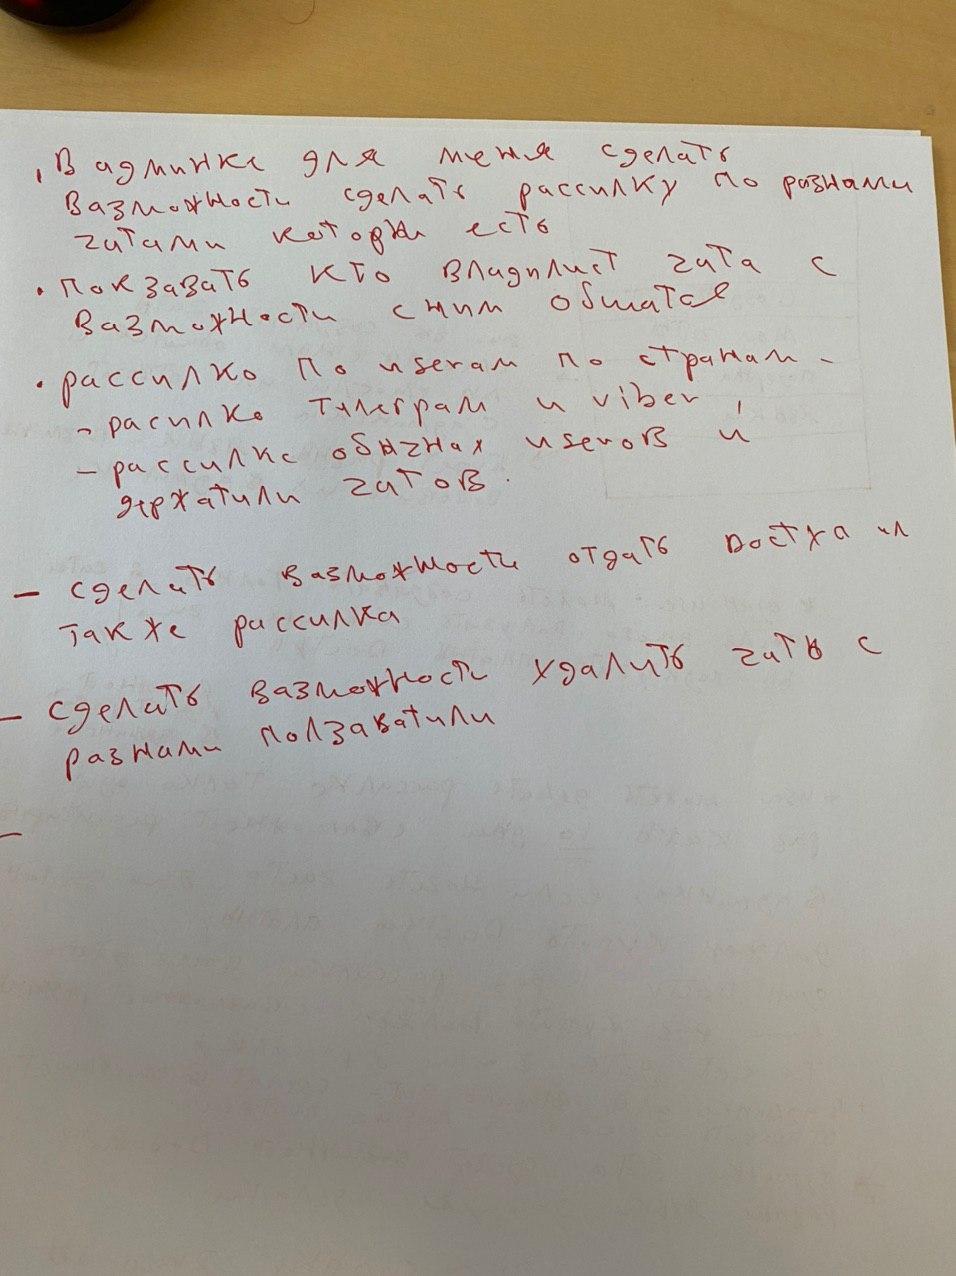 В админке для меня сделать
вазможности сделать рассилку по разнами
чатами которы есть
• показавать кто владилист чата с
вазможности с ним обшатся
• рассилко по userам по странам -
- расилко тилеграм и viber,
- рассилкс обычнах userов и
держатили чатов.
- сделить вазможности отдать
также рассилка
- сделить вазможности удалить чатв с
разнами ползаватили
-